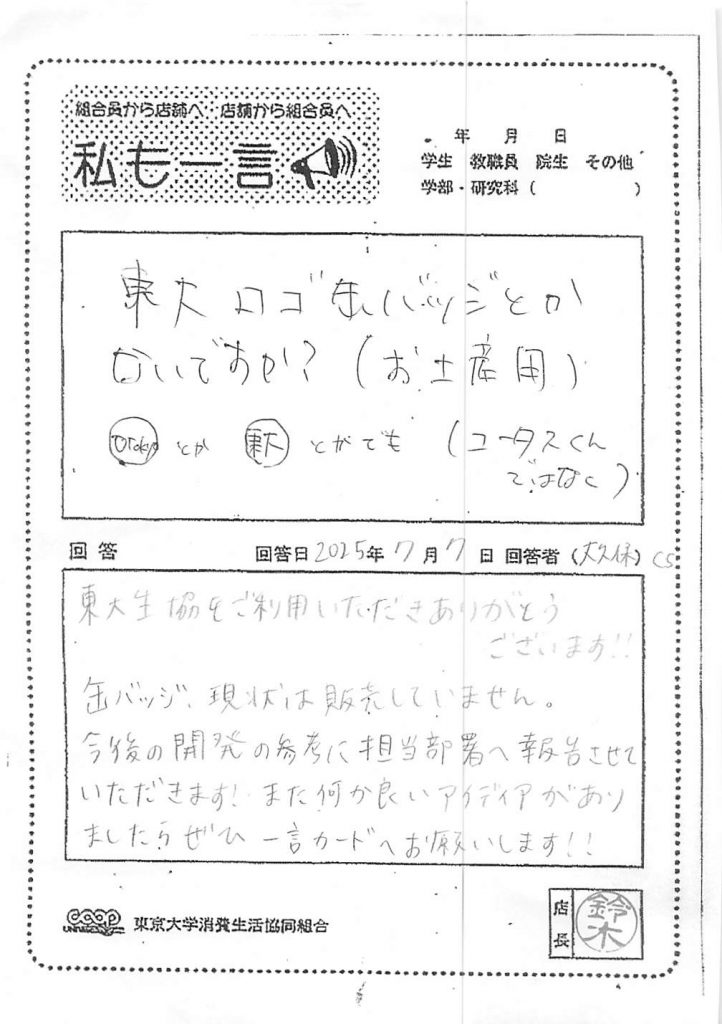 組合員から店舗へ・店舗から組合員へ
私も一言
年 月 日
学生 教職員 院生 その他
学部・研究科 ( )
東大ロゴ缶バッジとか
ないですか? (お土産用)
UTokyo とか 東大 とかでも (ユータスくん
ではなく)
回答 回答日 2025年 7月 7日 回答者 (大久保) CS
東大生協をご利用いただきありがとう
ございます!!
缶バッジ、現状は販売していません。
今後の開発の参考に担当部署へ報告させて
いただきます! また何か良いアイディアがあり
ましたらぜひ 一言カードへお願いします!!
CO-OP
UNIV.
東京大学消費生活協同組合
店長
鈴木